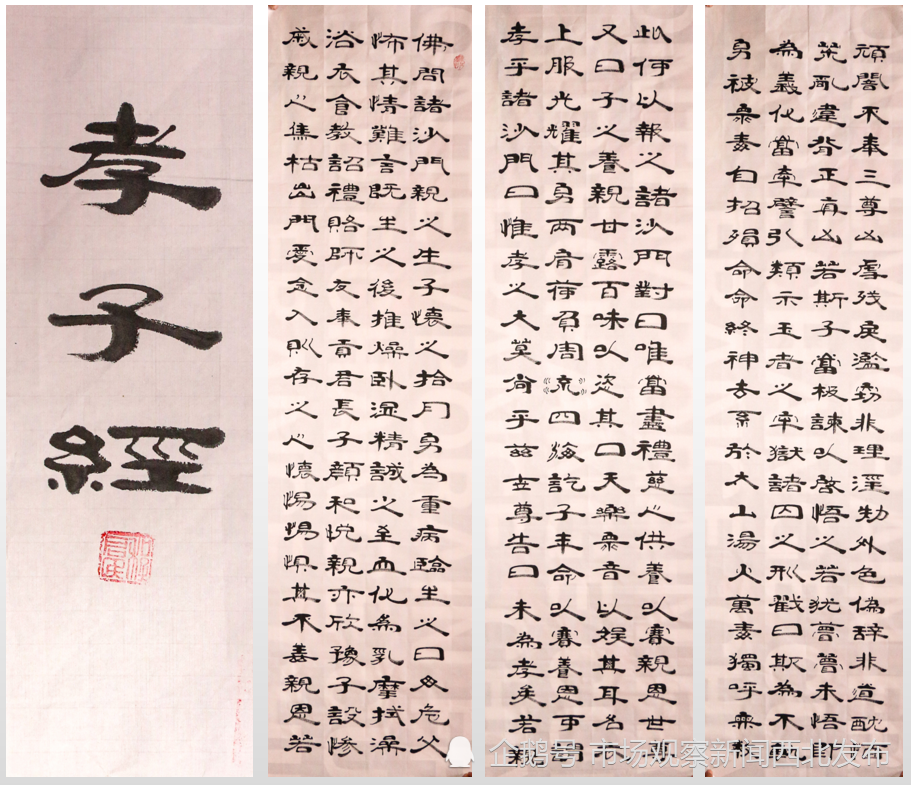 孝子經
佛問諸沙門親之生子懷之拾月身為重病臨生之日母危父
怖其情難言既生之後推燥臥濕精誠之至血化為乳摩拭澡
浴衣食教詔禮賂師友奉貢君長子顏和悅親亦欣豫子設慘
慼親心焦枯出門愛念入則存之心懷惕惕懼其不善親恩若
此何以報之諸沙門對曰唯當盡禮慈心供養以賽親恩世尊
又曰子之養親甘露百味以恣其口天樂眾音以娛其耳名衣
上服光耀其身兩肩荷負周流四海訖子年命以賽養恩可謂
孝乎諸沙門曰惟孝之大莫尚乎茲世尊告曰未為孝矣若親
頑闇不奉三尊凶虐殘戾濫竊非理淫劮外色偽辭非道酖酒
荒亂違背正真凶若斯子當極諫以啓悟之若猶瞢瞢未悟即
為義化當牽譬引類示王者之牢獄諸囚之刑戮曰斯為不軌
身被眾毒自招殞命命終神去系於太山湯火萬毒獨呼無救
企鹅号 市场观察新闻西北发布